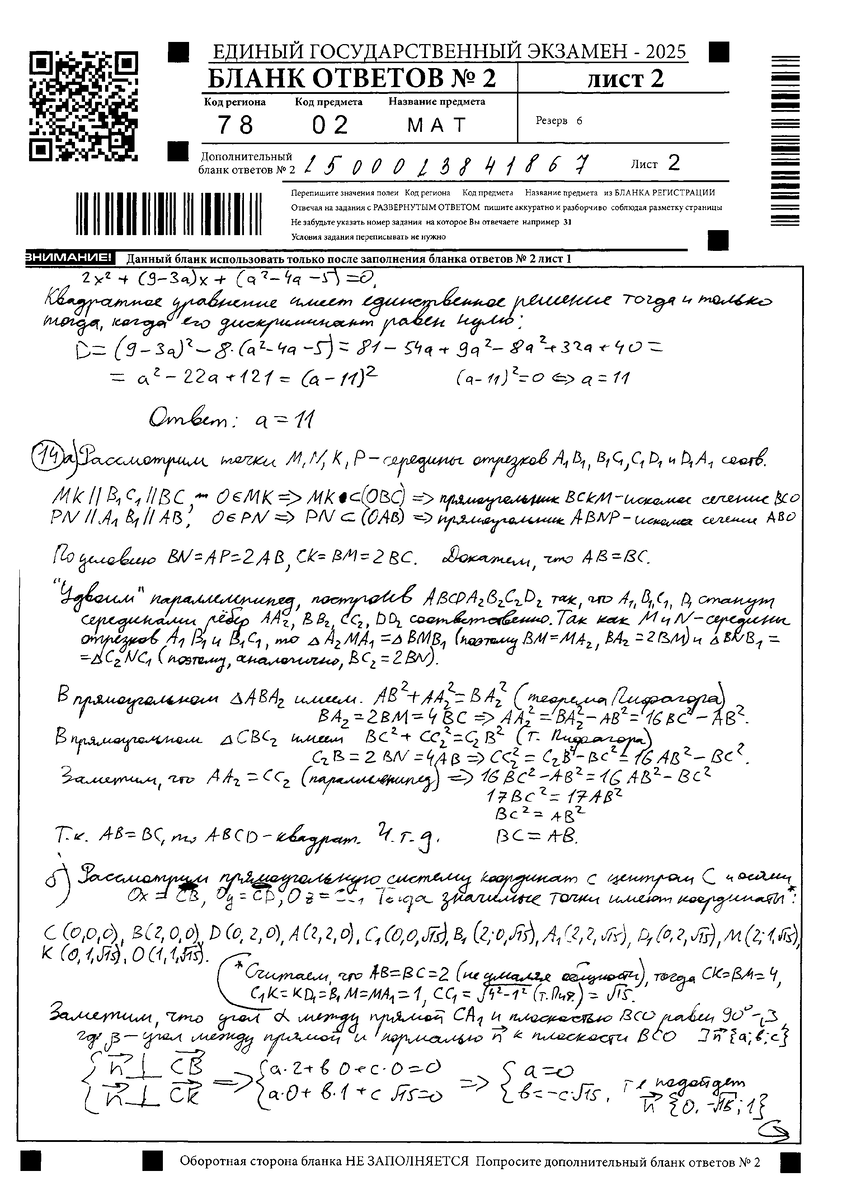 ЕДИНЫЙ ГОСУДАРСТВЕННЫЙ ЭКЗАМЕН - 2025
БЛАНК ОТВЕТОВ № 2 лист 2
Код региона Код предмета Название предмета
78 02 МАТ Резерв 6
Дополнительный
бланк ответов № 2 2500013841867 Лист 2
Перепишите значения полей Код региона Код предмета Название предмета из БЛАНКА РЕГИСТРАЦИИ
Отвечая на задания с РАЗВЕРНУТЫМ ОТВЕТОМ пишите аккуратно и разборчиво соблюдая разметку страницы
Не забудьте указать номер задания на которое Вы отвечаете например 31
Условия задания переписывать не нужно
ВНИМАНИЕ! Данный бланк использовать только после заполнения бланка ответов № 2 лист 1
2x² + (9-3a)x + (a²-4a-5) = 0.
Квадратное уравнение имеет единственное решение тогда и только
тогда, когда его дискриминант равен нулю:
D = (9-3a)² - 8·(a²-4a-5) = 81 - 54a + 9a² - 8a² + 32a + 40 =
= a² - 22a + 121 = (a-11)² (a-11)² = 0 ⇔ a = 11
Ответ: a = 11
14 а) Рассмотрим точки M, N, K, P - середины отрезков A₁B₁, B₁C₁, C₁D₁ и D₁A₁ соотв.
MK || B₁C₁ || BC, O∈MK ⇒ MK ⊂ (OBC) ⇒ прямоугольник BCKM - искомое сечение BCO
PN || A₁B₁ || AB, O∈PN ⇒ PN ⊂ (OAB) ⇒ прямоугольник ABNP - искомое сечение ABO
По условию BN = AP = 2AB, CK = BM = 2BC. Докажем, что AB = BC.
"Удвоим" параллелепипед, построив ABCDA₂B₂C₂D₂ так, что A₁, B₁, C₁, D₁ станут
серединами рёбер AA₂, BB₂, CC₂, DD₂ соответственно. Так как M и N - середины
отрезков A₁B₁ и B₁C₁, то △A₂MA₁ = △BMB₁ (поэтому BM = MA₂, BA₂ = 2BM) и △BNB₁ =
= △C₂NC₁ (поэтому, аналогично, BC₂ = 2BN).
В прямоугольном △ABA₂ имеем. AB² + AA₂² = BA₂² (теорема Пифагора)
BA₂ = 2BM = 4BC ⇒ AA₂² = BA₂² - AB² = 16BC² - AB².
В прямоугольном △CBC₂ имеем BC² + CC₂² = C₂B² (т. Пифагора)
C₂B = 2BN = 4AB ⇒ CC₂² = C₂B² - BC² = 16AB² - BC².
Заметим, что AA₂ = CC₂ (параллелепипед) ⇒ 16BC² - AB² = 16AB² - BC²
17BC² = 17AB²
BC² = AB²
Т.к. AB = BC, то ABCD - квадрат. Ч.т.д. BC = AB.
б) Рассмотрим прямоугольную систему координат с центром C и осями
Ox = CB, Oy = CD, Oz = CC₁ Тогда значимые точки имеют координаты*:
C (0,0,0), B(2,0,0), D(0,2,0), A(2,2,0), C₁(0,0,√15), B₁(2;0,√15), A₁(2,2,√15), D₁(0,2,√15), M(2;1,√15),
K (0,1,√15), O(1,1,√15).
*Считаем, что AB = BC = 2 (не умаляя общности), тогда CK = BM = 4,
C₁K = KD₁ = B₁M = MA₁ = 1, CC₁ = √4²-1² (т. Пиф.) = √15.
Заметим, что угол α между прямой CA₁ и плоскостью BCO равен 90° - β,
где β - угол между прямой и нормалью n к плоскости BCO ∃ n {a; b; c}
{ n ⊥ CB ⇒ { a·2 + b·0 + c·0 = 0 ⇒ { a = 0
{ n ⊥ CK { a·0 + b·1 + c√15 = 0 { b = -c√15, т.е подойдет
n {0, -√15; 1}
Оборотная сторона бланка НЕ ЗАПОЛНЯЕТСЯ Попросите дополнительный бланк ответов № 2